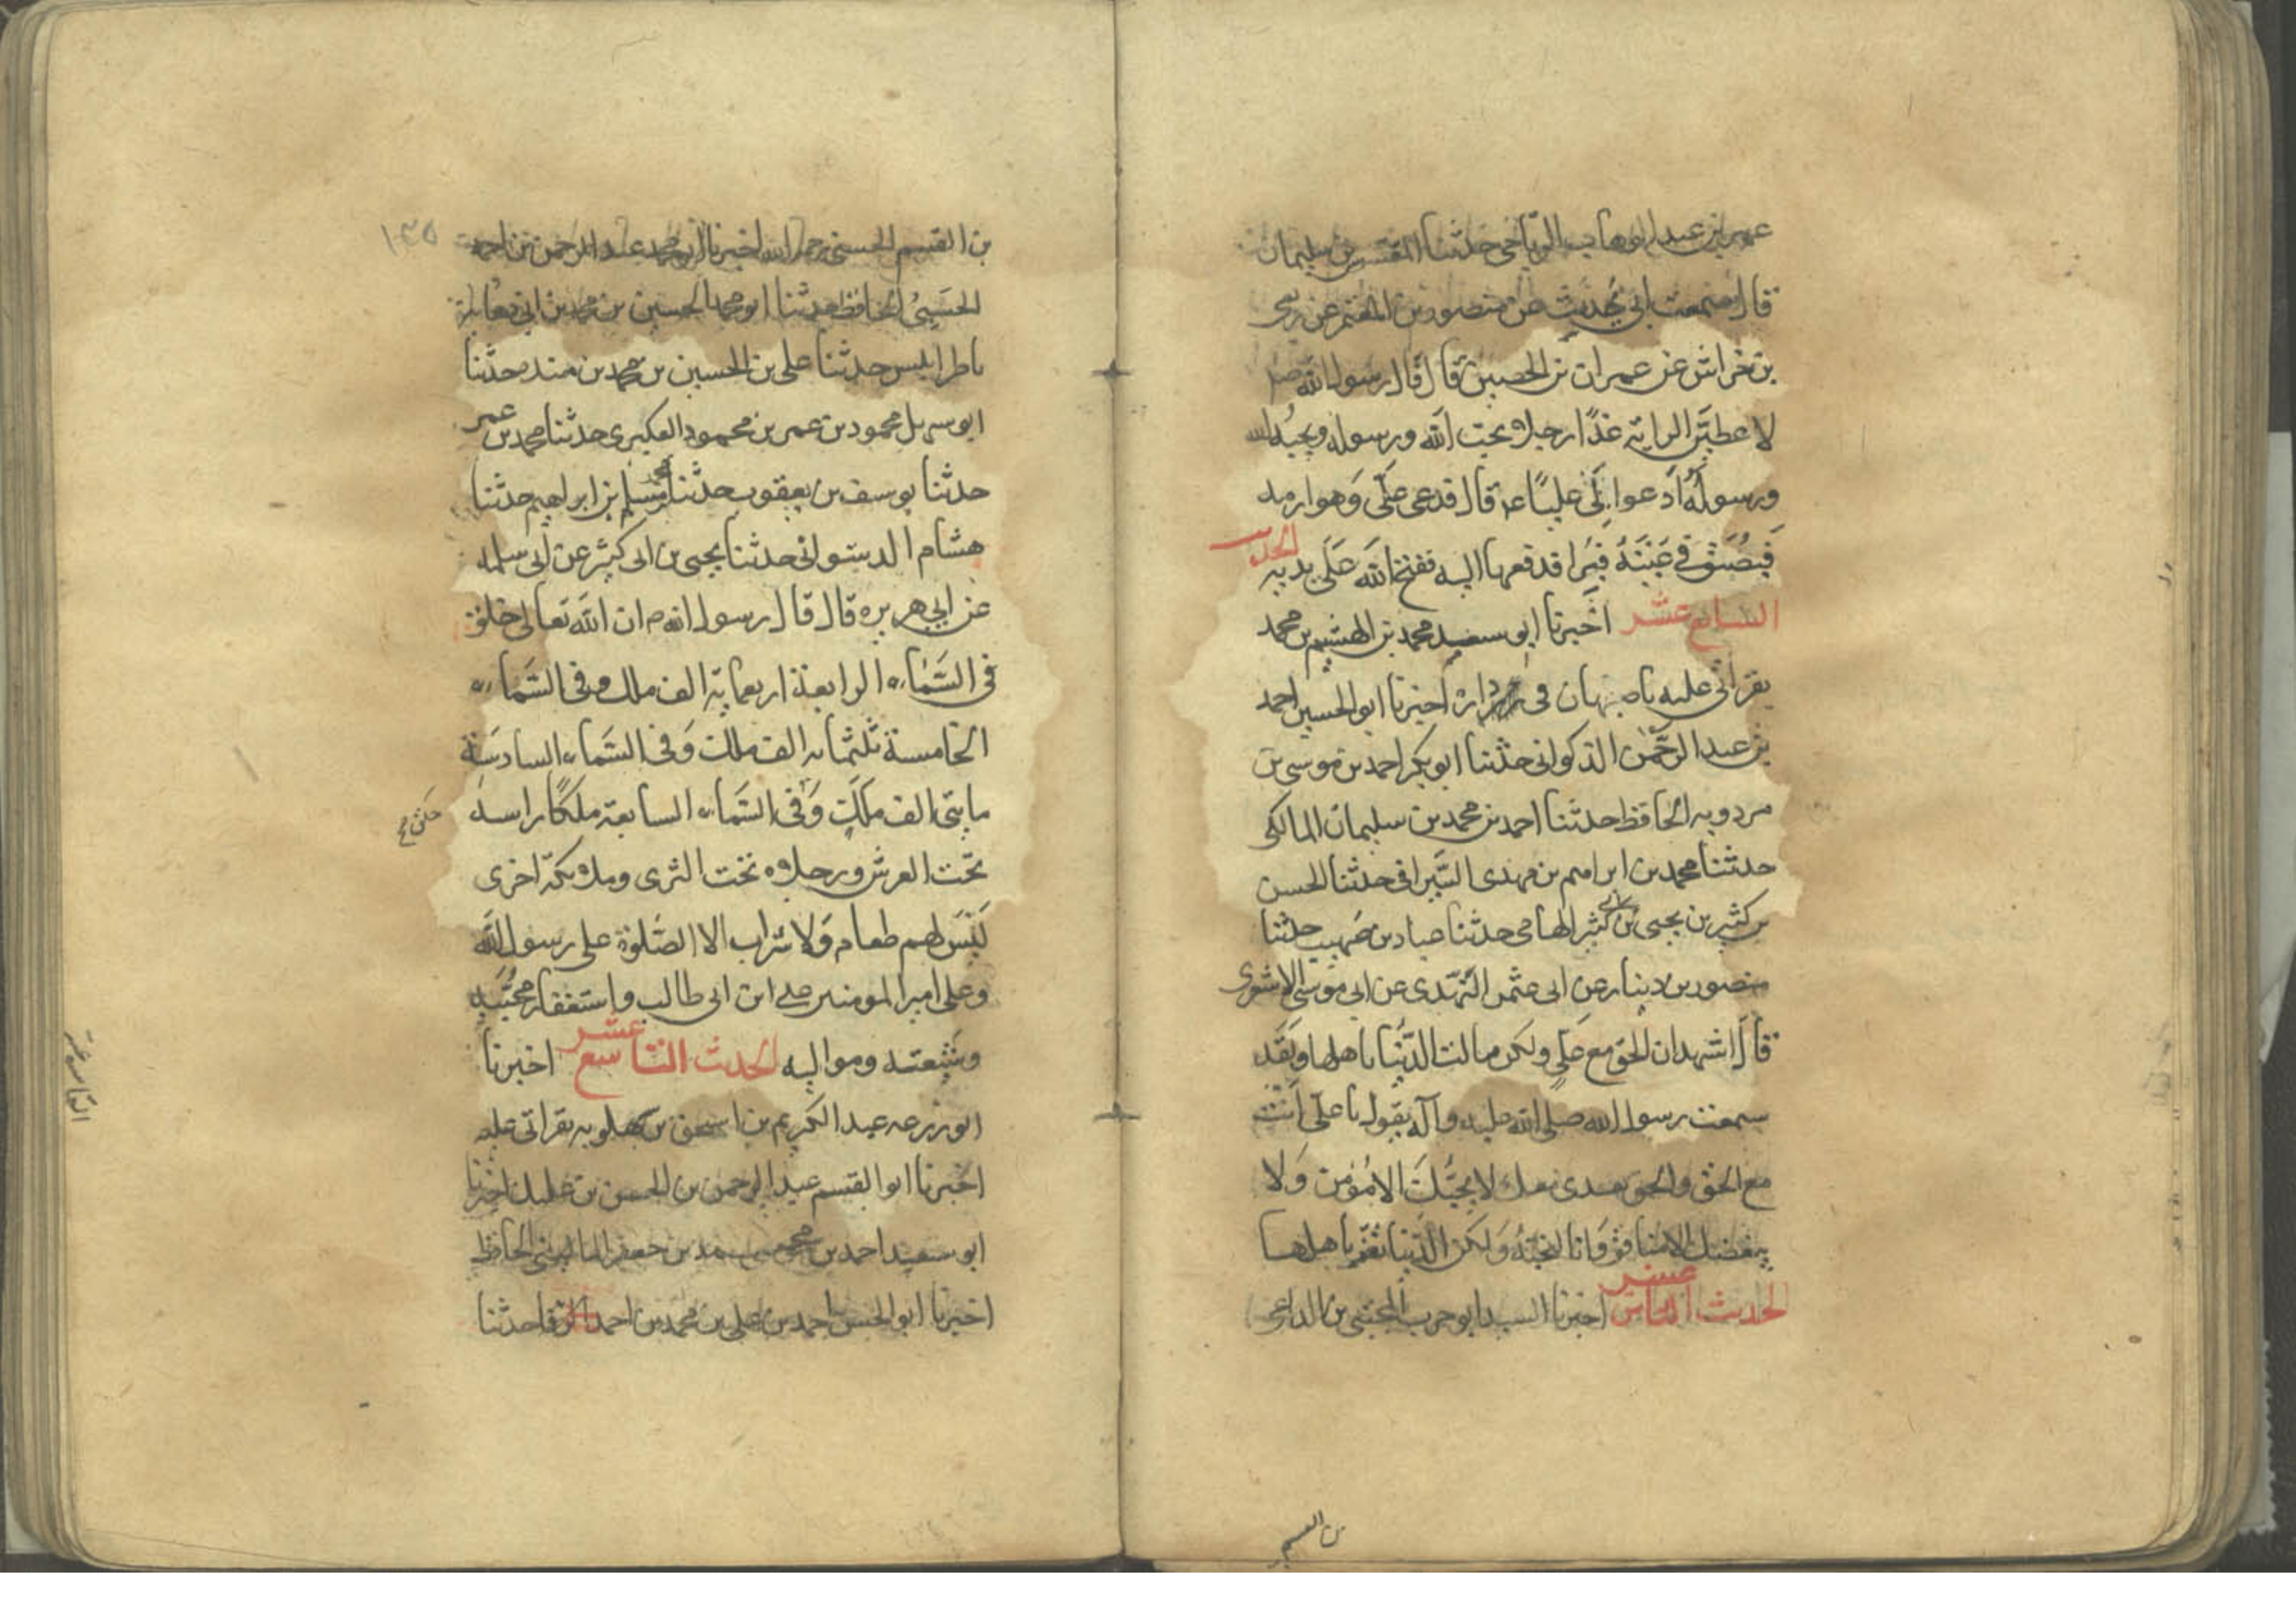 عمر بن عبد الوهاب الرياحى حدثنا المعتمر بن سليمان
قال سمعت ابى يحدث عن منصور بن المعتمر عن ربعى
بن خراش عن عمران بن الحصين قال قال رسول الله صلم
لاعطين الراية غدًا رجلا يحب الله ورسوله ويحبه الله
ورسوله ادعوا لى عليًا ع قال فدعى على وهو ارمد
فبصق فى عينه فبرا فدفعها اليه ففتح الله على يديه الحديث
السابع عشر اخبرنا ابو سعيد محمد بن الهيثم بن محمد
بقراتى عليه باصبهان فى داره اخبرنا ابو الحسين احمد
بن عبد الرحمن الذكوانى حدثنا ابو بكر احمد بن موسى بن
مردويه الحافظ حدثنا احمد بن محمد بن سليمان المالكى
حدثنا محمد بن ابراهيم بن مهدى السيرافى حدثنا الحسن
بن كثير بن يحيى بن ابى كثير الهامى حدثنا عباد بن صهيب حدثنا
منصور بن دينار عن ابى عثمن النهدى عن ابى موسى الاشعرى
قال اشهد ان الحق مع على ولكن مالت الدنيا باهلها ولقد
سمعت رسول الله صلى الله عليه وآله يقول يا على انت
مع الحق والحق بعدى معك لا يحبك الا مؤمن ولا
يبغضك الا منافق وانا لنحبه ولكن الدنيا تغر باهلها
الحديث الثامن عشر اخبرنا السيد ابو حرب المجتبى بن الداعى
بن القسم
١٣٥
بن القسم الحسنى رحمه الله اخبرنا ابو محمد عبد الرحمن بن احمد
الحسينى الحافظ حدثنا ابو محمد الحسين بن محمد بن ابى
باطرابلس حدثنا على بن الحسين بن محمد بن منده حدثنا
ابو سهل محمود بن عمر بن محمود العكبرى حدثنا محمد بن عمر
حدثنا يوسف بن يعقوب حدثنا مسلم بن ابراهيم حدثنا
هشام الدستوانى حدثنا يحيى بن ابى كثير عن ابى سلمه
عن ابى هريره قال قال رسول الله ص ان الله تعالى خلق
فى السماء الرابعة اربعماية الف ملك وفى السماء
الخامسة ثلثمايه الف ملك وفى السماء السادسة
مايتى الف ملك وفى السماء السابعة ملكًا راسه
تحت العرش ورجلاه تحت الثرى وملائكة اخرى
ليس لهم طعام ولا شراب الا الصلوة على رسول الله
وعلى امير المومنين على ابن ابى طالب واستغفار محبيه
وشيعته ومواليه الحديث التاسع عشر اخبرنا
ابو زرعه عبد الكريم بن اسحق بن سهلويه بقراتى عليه
اخبرنا ابو القسم عبد الرحمن بن الحسن بن عليك اخبرنا
ابو سعيد احمد بن محمد بن جعفر المالينى الحافظ
اخبرنا ابو الحسن احمد بن على بن محمد بن احمد الرفا حدثنا